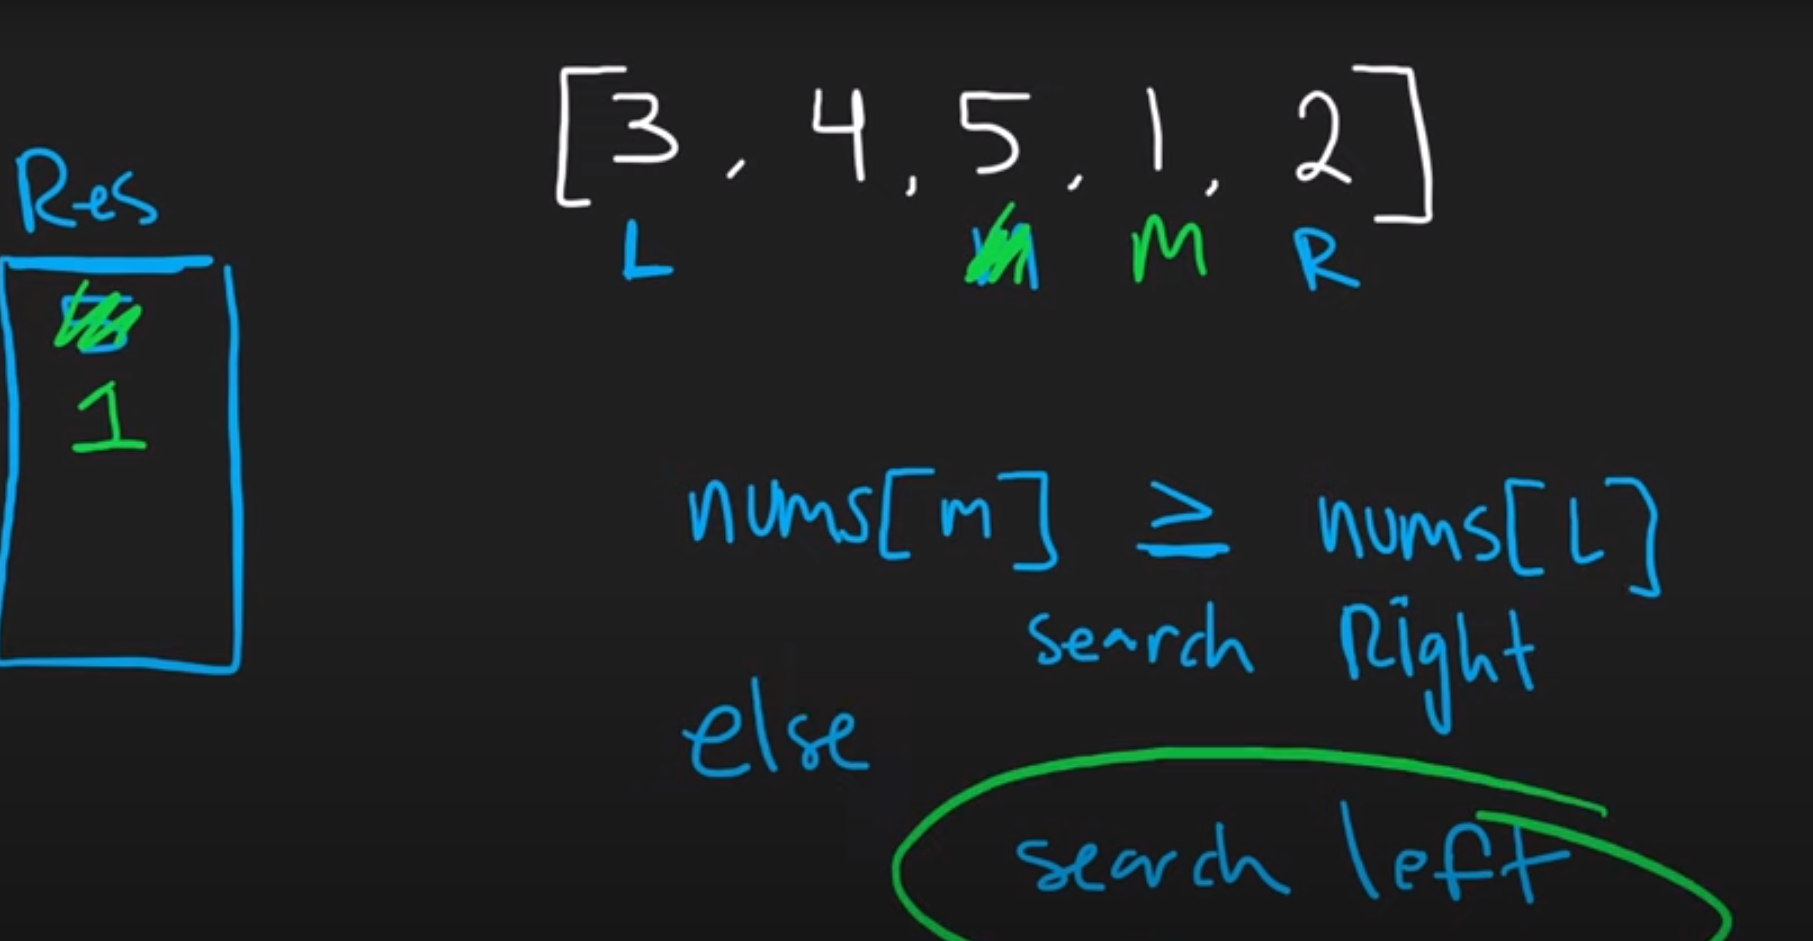 [3, 4, 5, 1, 2]
L M R
Res
1
nums[m] ≥ nums[L]
search Right
else
search left